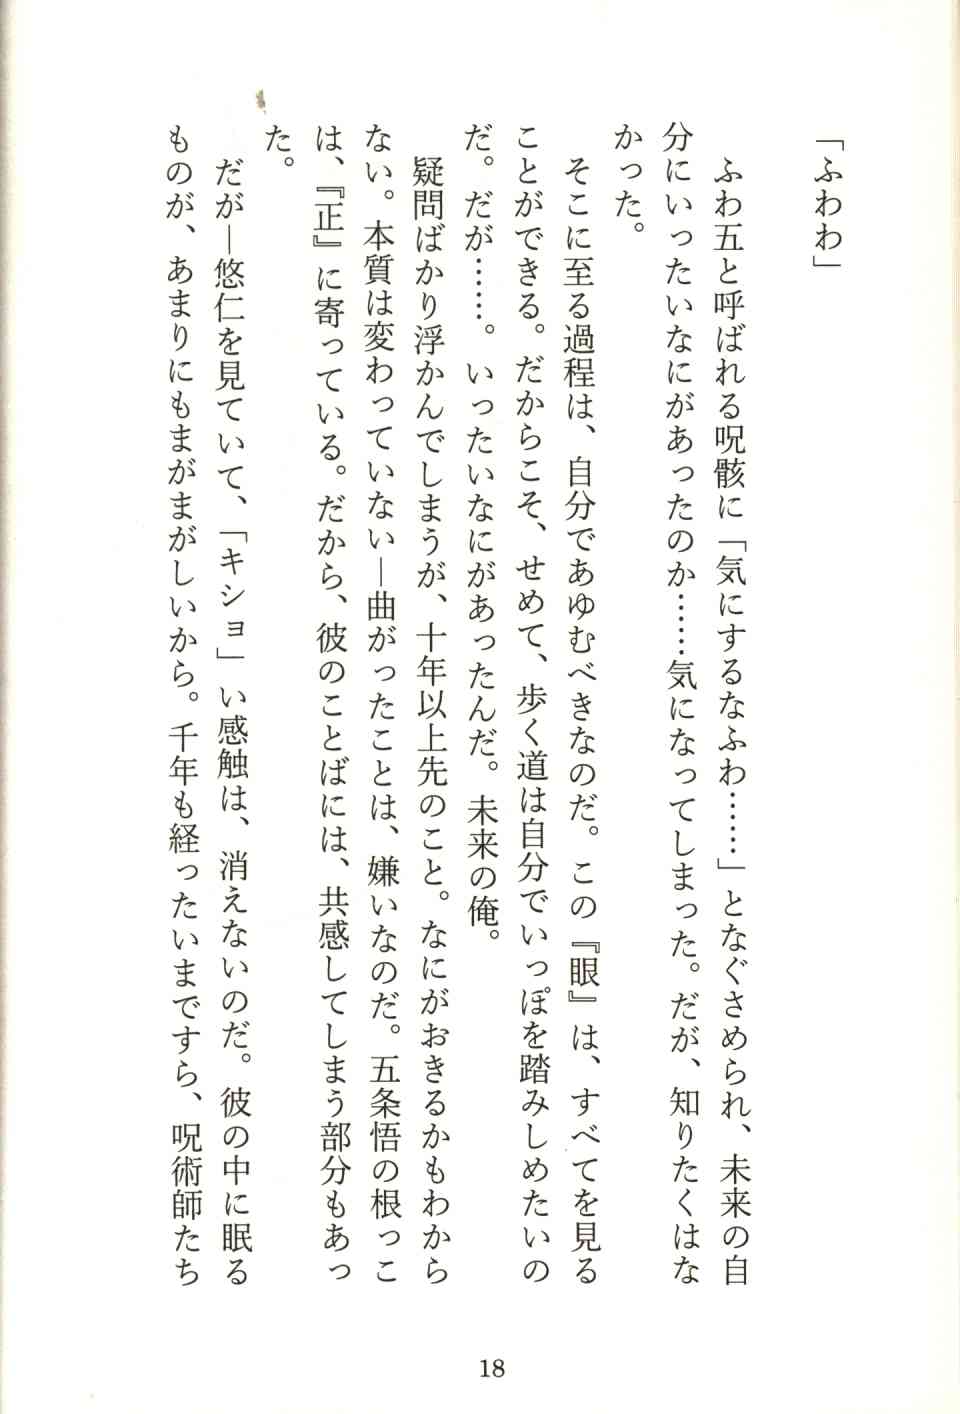 「ふわわ」
　ふわ五と呼ばれる呪骸に「気にするなふわ……」となぐさめられ、未来の自
分にいったいなにがあったのか……気になってしまった。だが、知りたくはな
かった。
　そこに至る過程は、自分であゆむべきなのだ。この『眼』は、すべてを見る
ことができる。だからこそ、せめて、歩く道は自分でいっぽを踏みしめたいの
だ。だが……。いったいなにがあったんだ。未来の俺。
　疑問ばかり浮かんでしまうが、十年以上先のこと。なにがおきるかもわから
ない。本質は変わっていない―曲がったことは、嫌いなのだ。五条悟の根っこ
は、『正』に寄っている。だから、彼のことばには、共感してしまう部分もあっ
た。
　だが―悠仁を見ていて、「キショ」い感触は、消えないのだ。彼の中に眠る
ものが、あまりにもまがまがしいから。千年も経ったいまですら、呪術師たち
18